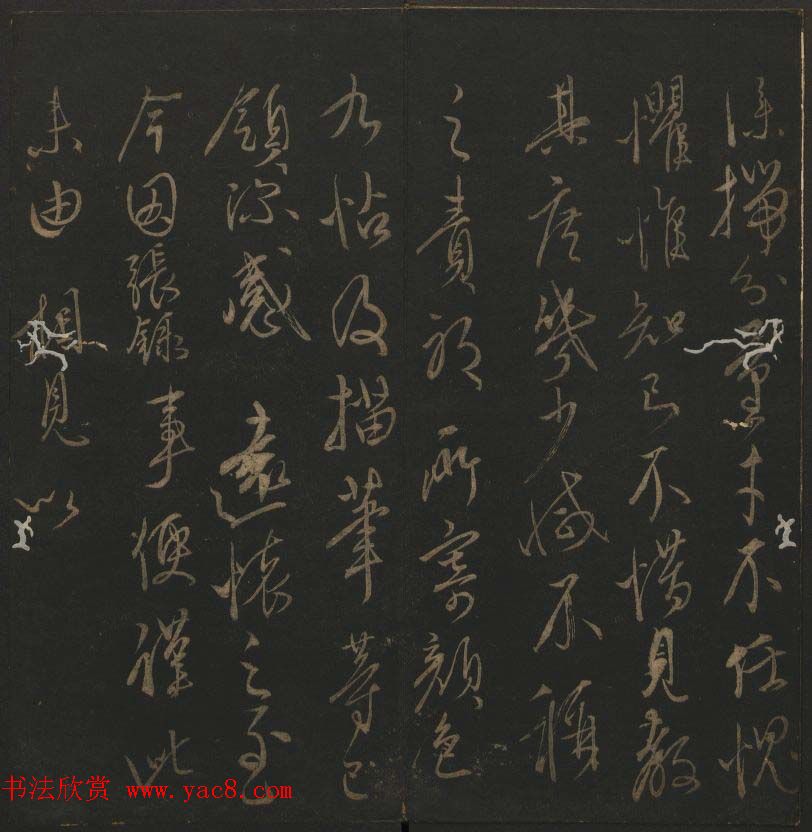 深揣分量才不任愧
懼惟知己不惜見教
其庶幾少減不稱
之責耶所寄顏色
九帖及描筆等已
領深感遠懷之至
今因張錄事便謹此
未由相見以
书法欣赏 www.yac8.com